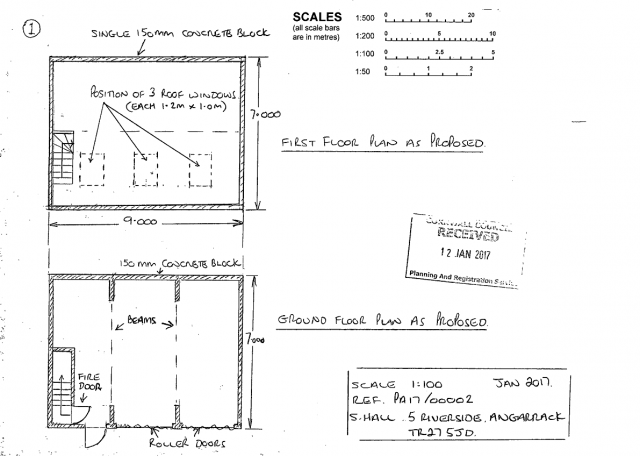 1
SINGLE 150mm CONCRETE BLOCK
SCALES
(all scale bars
are in metres)
1:500 0 10 20
1:200 0 5 10
1:100 0 2.5 5
1:50 0 1 2
POSITION OF 3 ROOF WINDOWS
(EACH 1·2m x 1·0m)
7·000
FIRST FLOOR PLAN AS PROPOSED.
9·000
CORNWALL COUNCIL
RECEIVED
12 JAN 2017
Planning And Registration Service
150mm CONCRETE BLOCK
BEAMS
7·000
GROUND FLOOR PLAN AS PROPOSED.
FIRE
DOOR
ROLLER DOORS
SCALE 1:100 JAN 2017.
REF. PA17/00002
S. HALL . 5 RIVERSIDE, ANGARRACK
TR27 5JD.